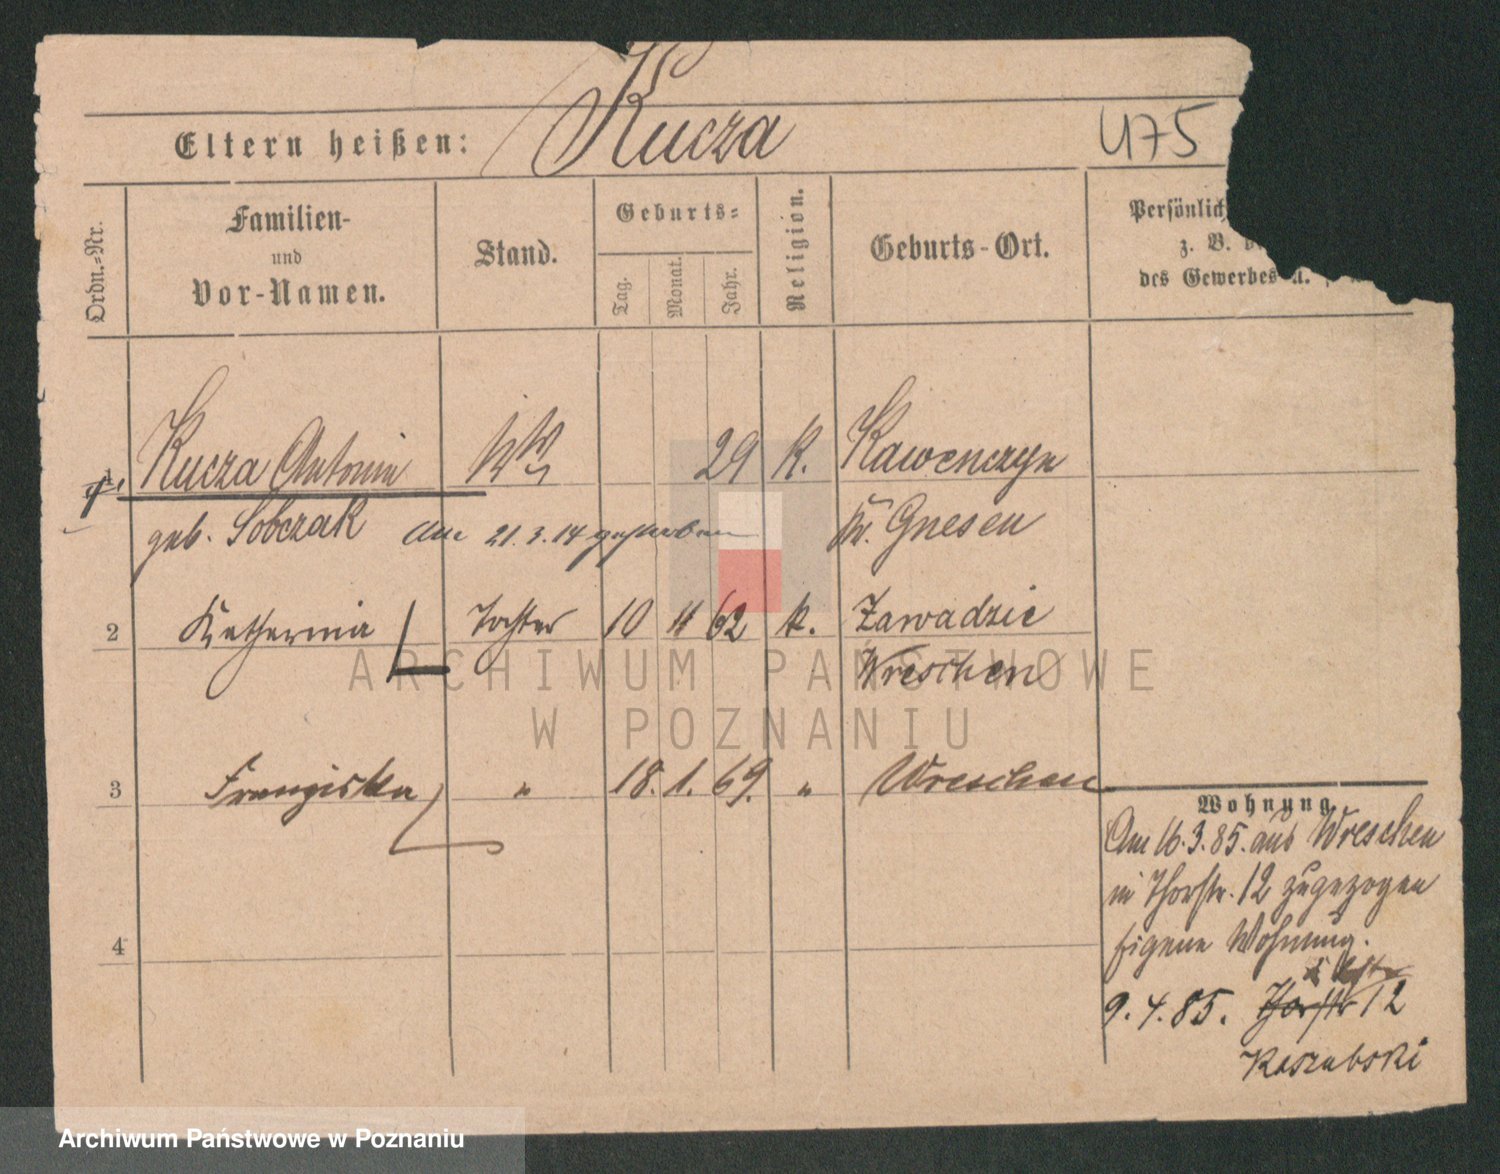 Eltern heißen: Kucza 475
Ordn.-Nr.
Familien-
und
Vor-Namen.
Stand.
Geburts-
Tag.
Monat.
Jahr.
Religion.
Geburts-Ort.
Persönlich
z. B.
des Gewerbes u.
1. Kucza Antonie WW 29 K. Kawenczyn
geb. Sobczak Am 21.3.14 gestorben Kr. Gnesen
2 Katharina Tochter 10 11 62 k. Zawadzie
Wreschen
3 Franziska " 18. 1. 69. " Wreschen
4
Wohnung
Am 16.3.85. aus Wreschen
in Thorstr. 12 zugezogen
Eigene Wohnung.
9.4.85. Thorstr 12
Kaszubski
ARCHIWUM PAŃSTWOWE
W POZNANIU
Archiwum Państwowe w Poznaniu